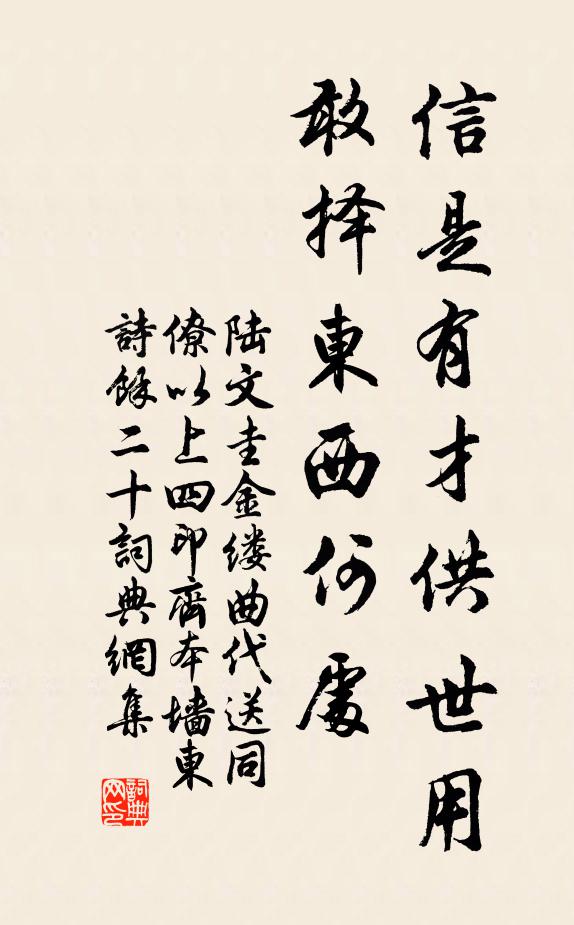 信是有才供世用
敢择東西何處
陆文圭金缕曲代送同
僚以上四印齊本墙東
詩餘二十詞典網集
詞典
网印